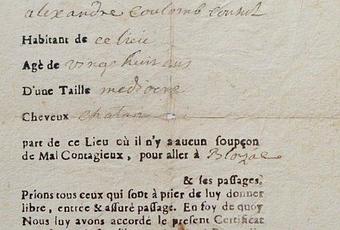 alexandre coulomb consul
Habitant de ce lieu
Agè de vingt huit ans
D'une Taille mediocre
Cheveux chatain
part de ce Lieu où il n'y a aucun soupçon
de Mal Contagieux, pour aller à
& les passages,
Prions tous ceux qui sont à prier de luy donner
libre, entrée & assuré passage. En foy de quoy
Nous luy avons accordé le present Certificat